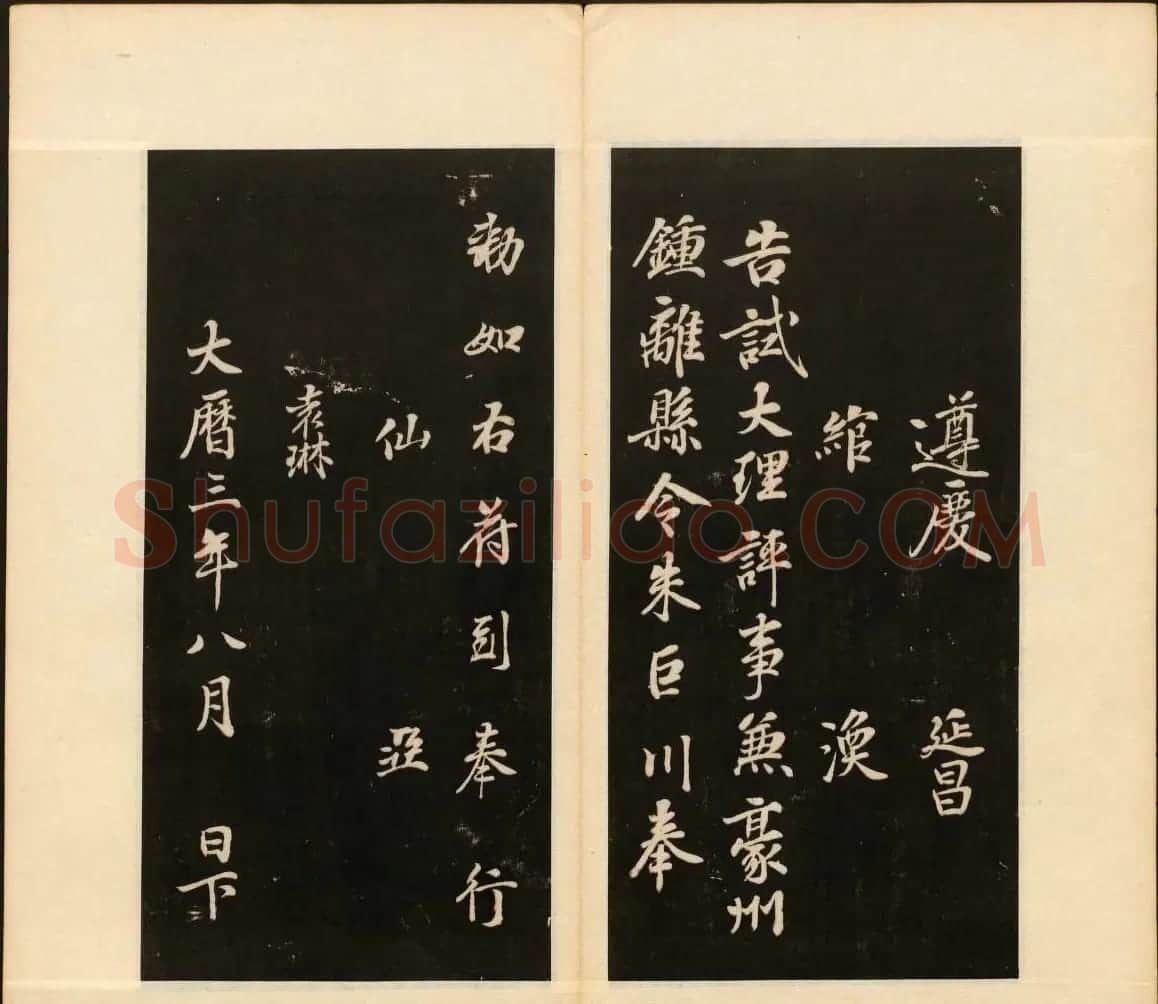 遵慶 延昌
綰 渙
告試大理評事兼豪州
鍾離縣令朱巨川奉
勅如右苻到奉行
仙 
袁琳
大曆三年八月 日下
Shufaziliao.COM